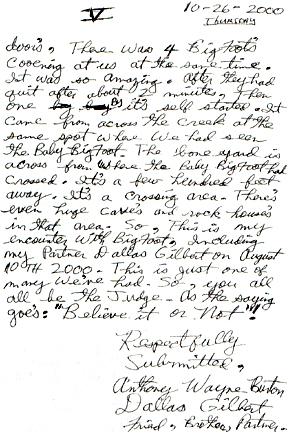 V
10-26-2000
THURSDAY
There Was 4 Bigfoot's
Covering at us at the same time.
It was so amazing. After they had
quit after about 2 minutes, Then
one by it's self started. It
came from across the creek at the
same spot where We had seen
the Baby BigFoot. The bone yard is
across from where the Baby BigFoot had
crossed. It's a few hundred feet
away. It's a crossing area. There's
even huge caves and rock houses
in that area. So, This is my
encounter With BigFoot, Including
my Partner Dallas Gilbert on August
10TH 2000. This is just one of
many We've had. So, you all
all be the Judge. As the saying
goes: "Believe it or Not"!
Respectfully
Submitted,
Anthony Wayne Burton
Dallas Gilbert
Friend, Brother, Partner.